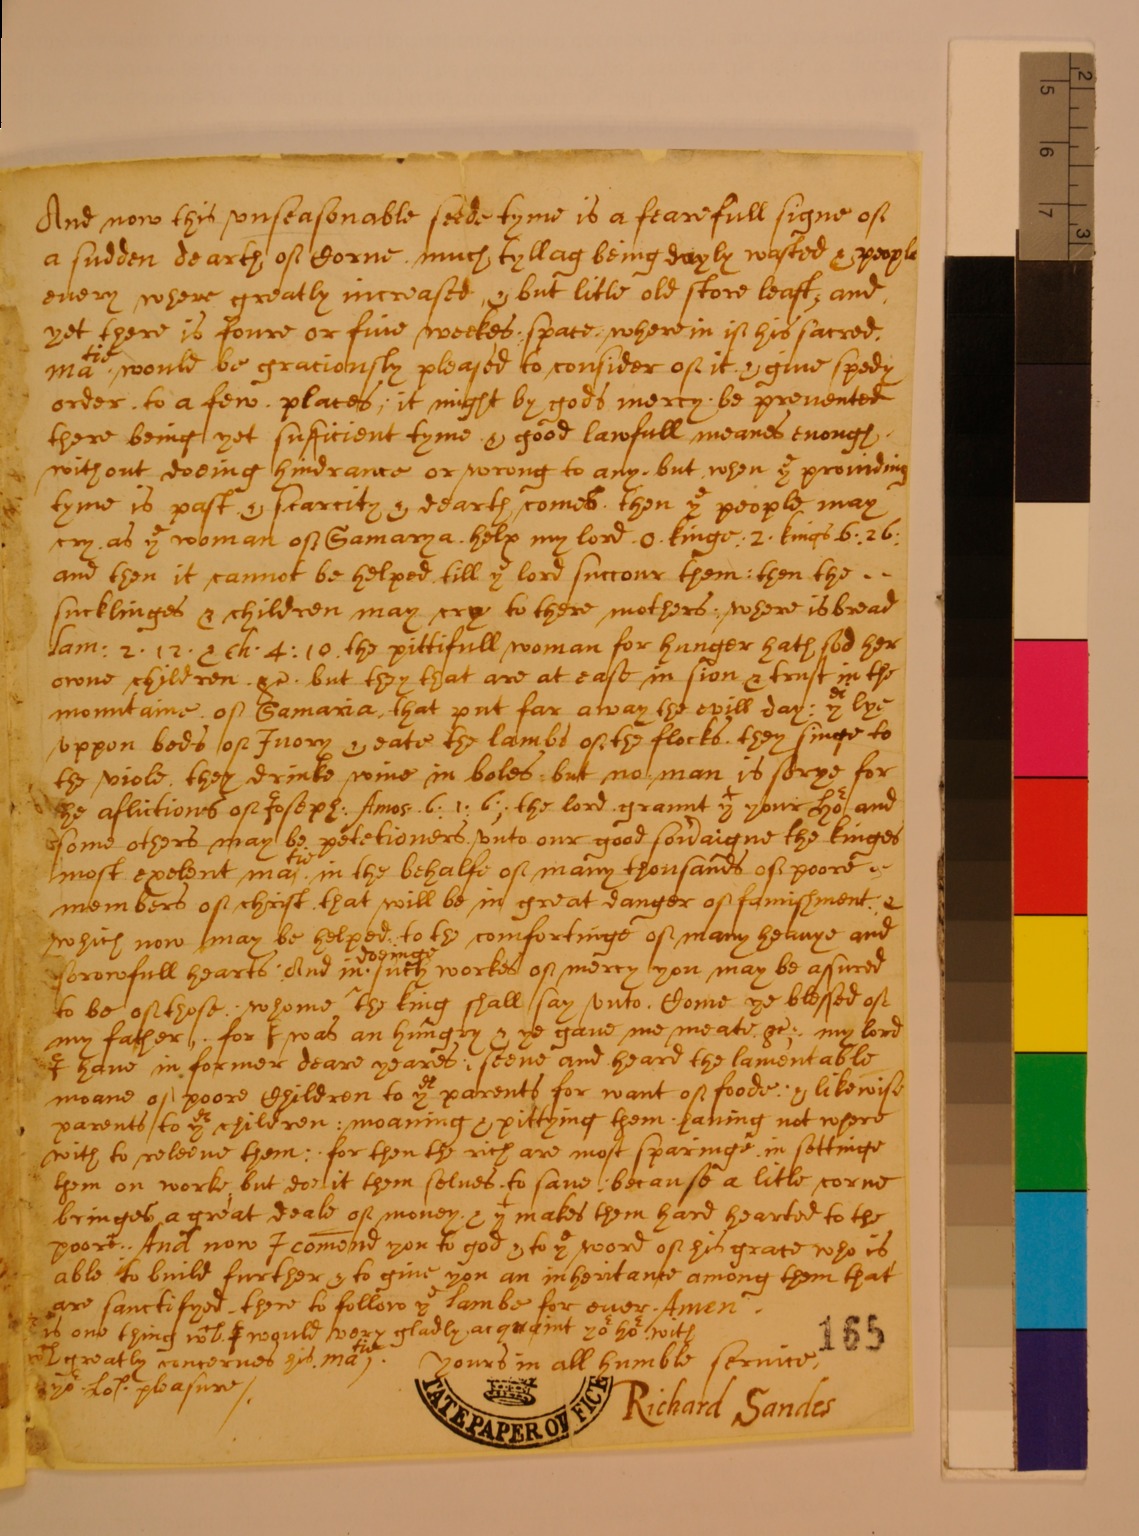 And now this vnseasonable seede tyme is a fearefull signe of
a sudden dearth of Corne. much tyllag being dayly wasted & people
euery where greatly increased, & but litle old store least; and,
yet there is foure or fiue weekes space. wherein if his sacred.
matie. would be graciously pleased to consider of it. & giue spedy
order. to a few. places; it might by gods mercy. be preuented
there being yet sufficient tyme & good lawfull meanes enough.
without doeing hindrance or wrong to any. but when ye prouiding
tyme is past. & scarcity & dearth, comes. then ye people may
cry. as ye woman of Samarya. help my lord. o. kinge: 2. kings. 6: 26:
and then it cannot be helped till ye lord succour them: then the --
sucklinges & children may cry to there mothers: where is bread
Lam: 2. 12. & Ch. 4: 10. the pittifull woman for hunger hath sod her
owne children. &c. but they that are at ease in sion & trust in the
mountaine of Samaria, that put far away the evill day: yt lye
vppon beds of Iuory & eate the lambs of the flocks. they singe to
the viole. they drinke wine in boles: but no man is sorye for
the aflictions of Joseph: Amos. 6: 1: 6; the lord graunt yt your Hor and
some others may be petetioners vnto our good souraigne the kinges
most exelent matie. in the behalfe of many thousands of poore --
members of christ. that will be in great danger of famishment. &
which now may be helped to the comfortinge of many heauye and
sorowfull hearts: And in doeinge such workes of mercy you may be assured
to be of those: whome the king shall say vnto. Come ye blessed of
my father, for I was an hungry & ye gaue me meate &c: my lord
I haue in former deare yeares: seene and heard the lamentable
moane of poore Children to yer parents for want of foode: & likewise
parents to yer children: moaning & pittying them hauing not where
with to releeue them: for then the rich are most sparinge in settinge
them on worke, but doe it them selues to saue: because a litle corne
bringes a great deale of money. & yt makes them hard hearted to the
poore. And now I comend you to god & to ye word of his grace who is
able to build further & to giue you an inheritance among them that
are sanctifyed. there to follow ye lambe for euer. Amen.
is one thing wch. I would very gladly acquaint yor hor with
wch greatly concernes his. matie.
yours in all humble seruice,
yor. Lop. pleasure/.
Richard Sandes
165
TATE PAPER OFFICE